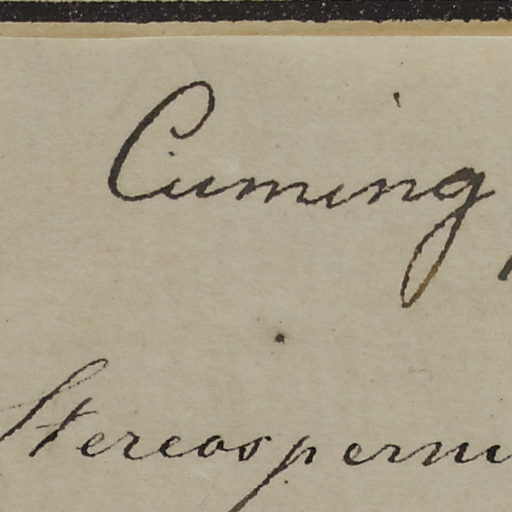 Cuming
Stereosperm